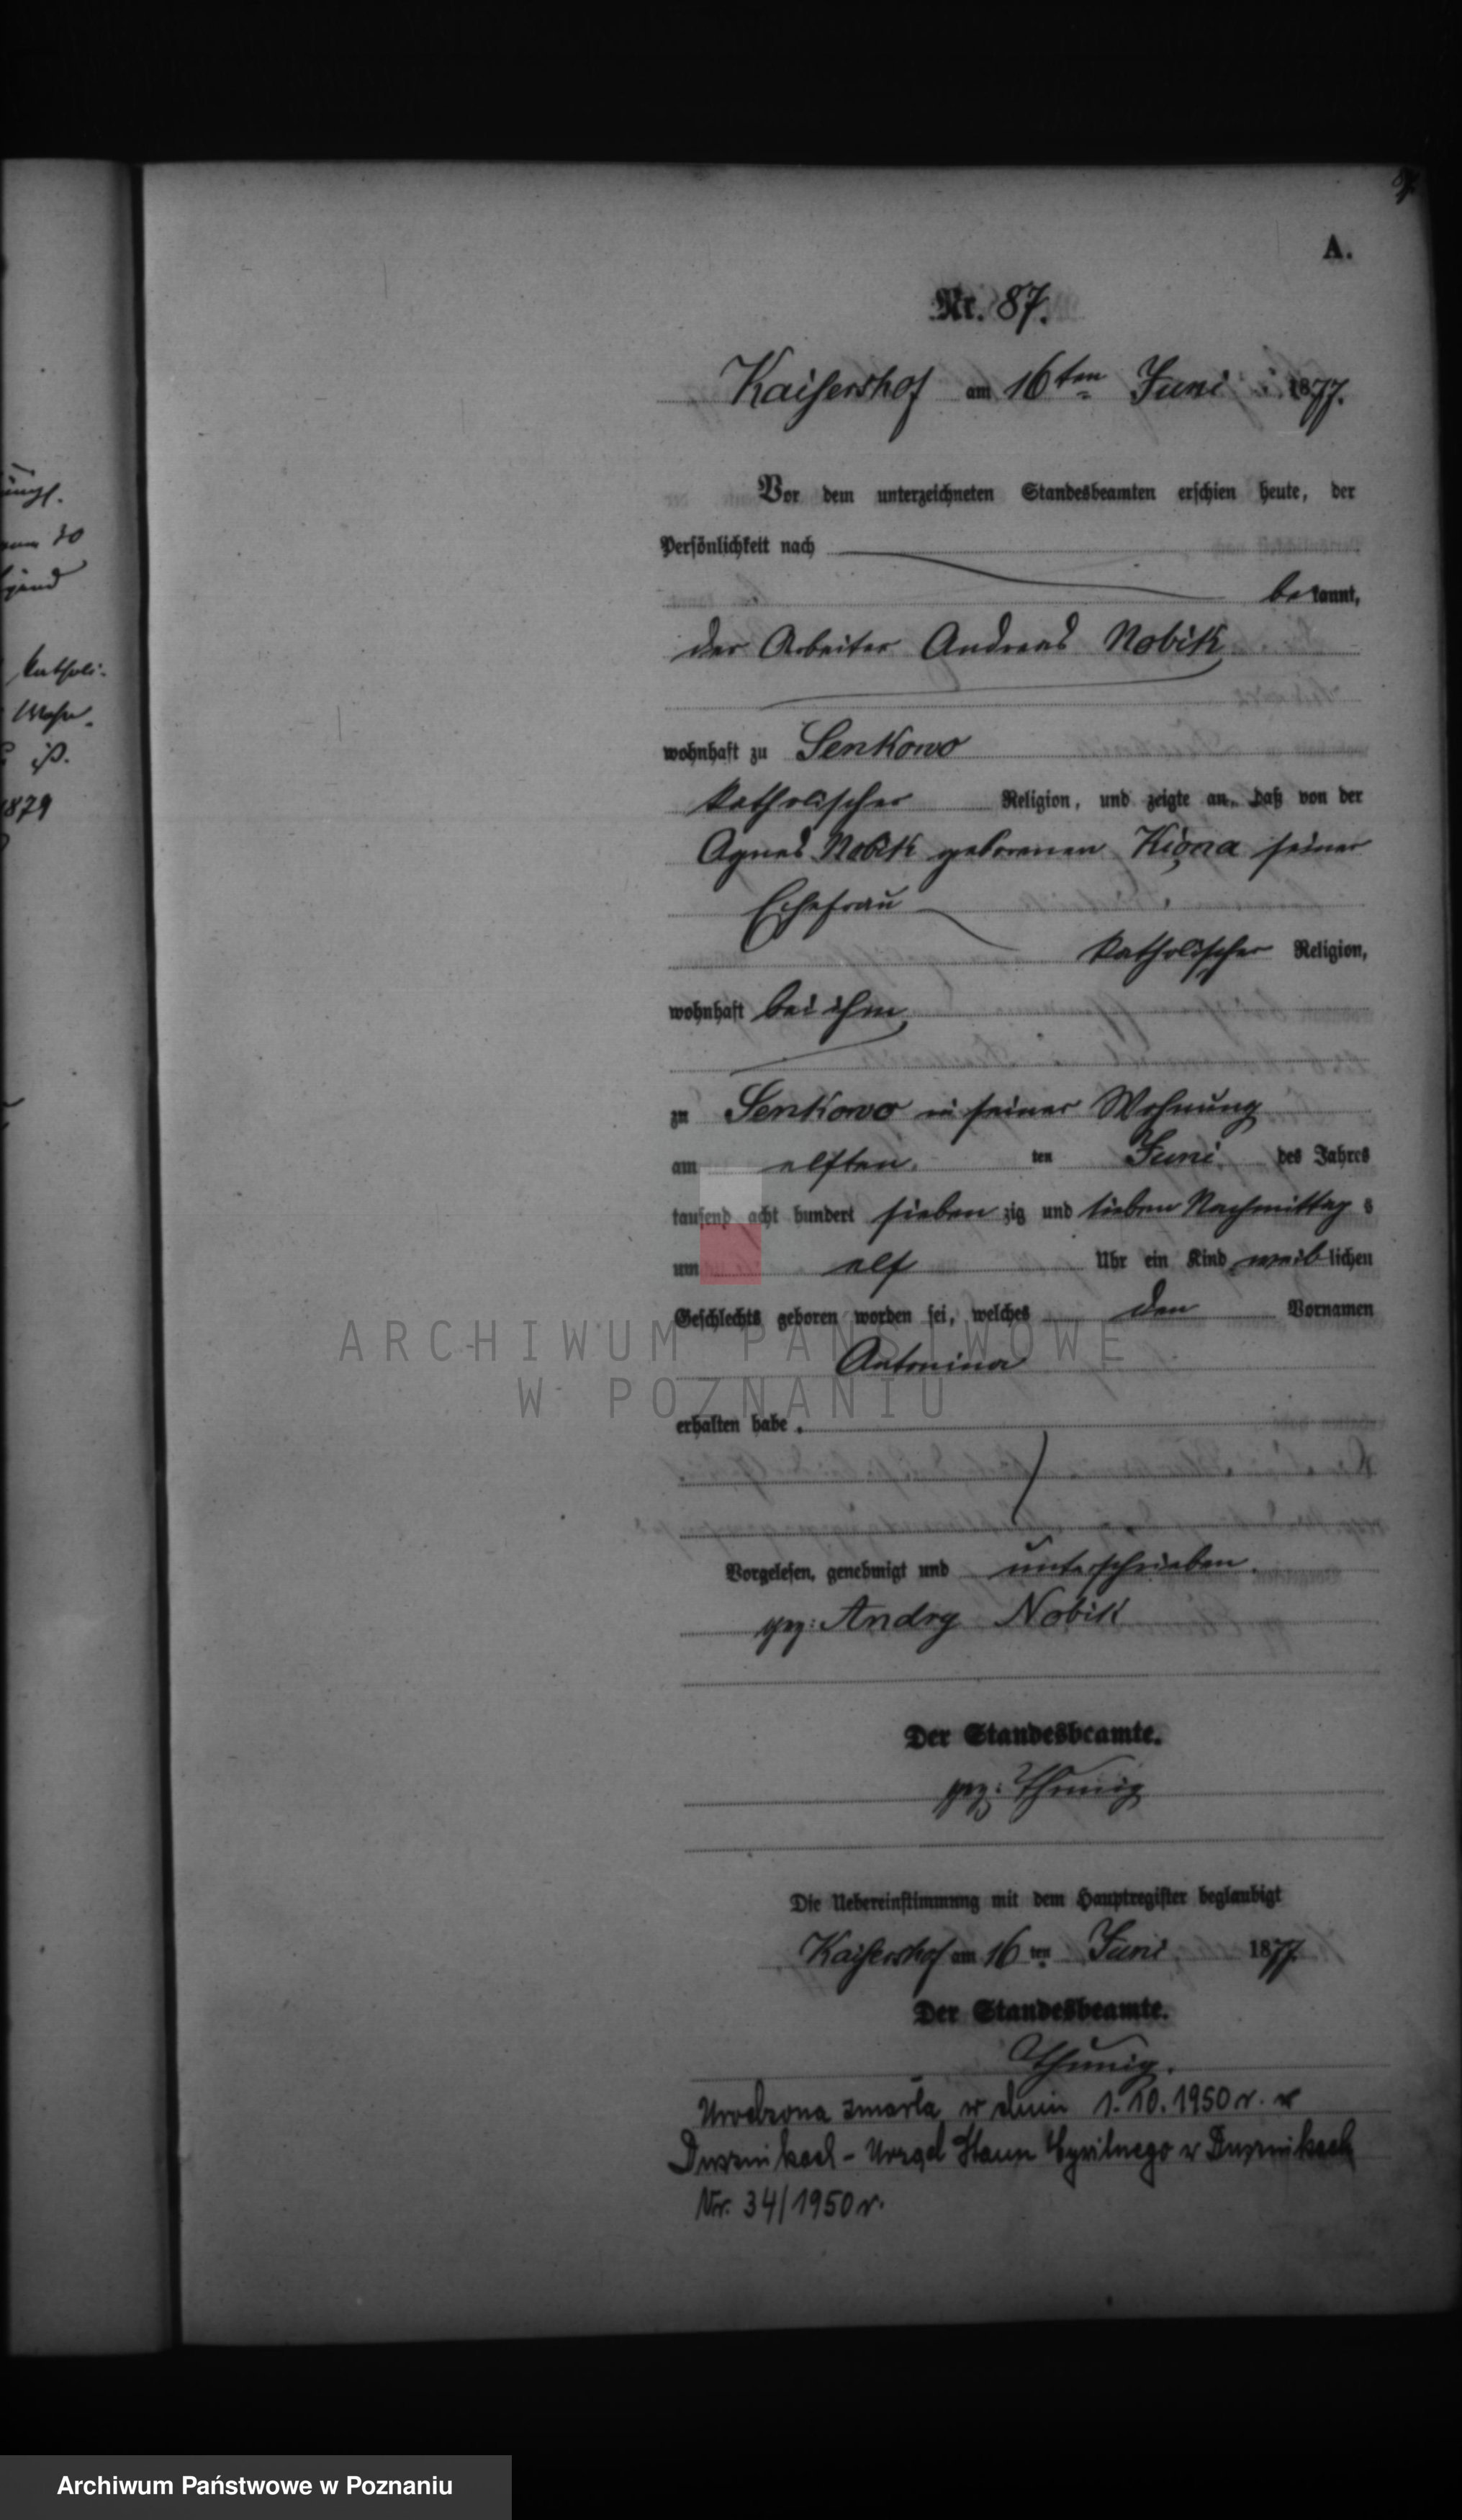 A.
Nr. 87.
Kaisershof am 16ten Juni 1877.
Vor dem unterzeichneten Standesbeamten erschien heute, der
Persönlichkeit nach
bekannt,
der Arbeiter Andreas Nobik
wohnhaft zu Senkowo
katholischer Religion, und zeigte an, daß von der
Agnes Nobik geborenen seiner
Ehefrau
katholischer Religion,
wohnhaft bei ihm
zu Senkowo in seiner Wohnung
am elften ten Juni des Jahres
tausend acht hundert sieben zig und sieben Nachmittags
um elf Uhr ein Kind weiblichen
Geschlechts geboren worden sei, welches den Vornamen
Antonina
erhalten habe.
Vorgelesen, genehmigt und unterschrieben.
gez: Andry Nobik
Der Standesbeamte.
gez: Thunig
Die Uebereinstimmung mit dem Hauptregister beglaubigt
Kaisershof am 16ten Juni 1877.
Der Standesbeamte.
Thunig.
Urodzona zmarła w dniu 1.10.1950 r. w
Dusznikach - Urząd Stanu Cywilnego w Dusznikach
Nr. 34/1950 r.
kathol.
1879
ARCHIWUM PAŃSTWOWE
W POZNANIU
Archiwum Państwowe w Poznaniu